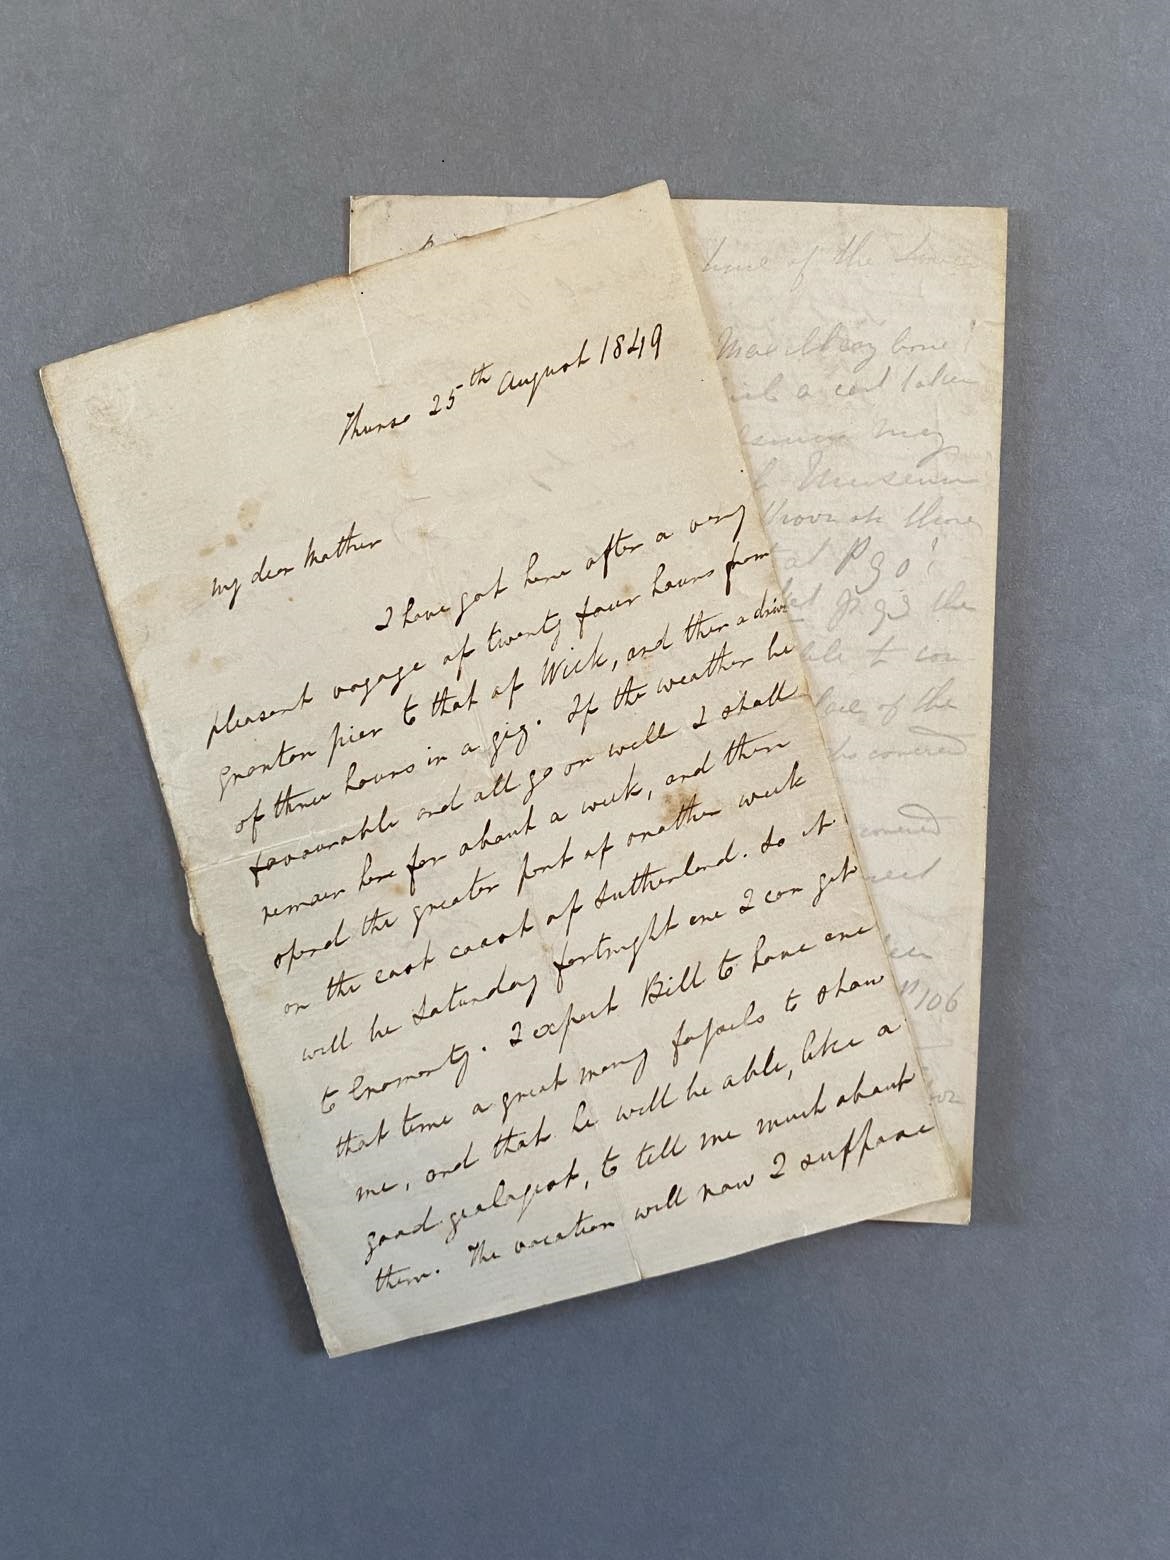 Thurso 25th August 1849
My dear Mother
I have got here after a very
pleasant voyage of twenty four hours from
Granton pier to that of Wick, and then a drive
of three hours in a gig. If the weather be
favourable and all go on well I shall
remain here for about a week, and then
spend the greater part of another week
on the east coast of Sutherland. So it
will be Saturday fortnight ere I can get
to Cromarty. I expect Bill to have ere
that time a great many fossils to show
me, and that he will be able, like a
good geologist, to tell me much about
them. The vacation will now I suppose
of the
bone!
a
may
Museum
P 90!
P 93 the
to con
of the
discovered
covered
P 106